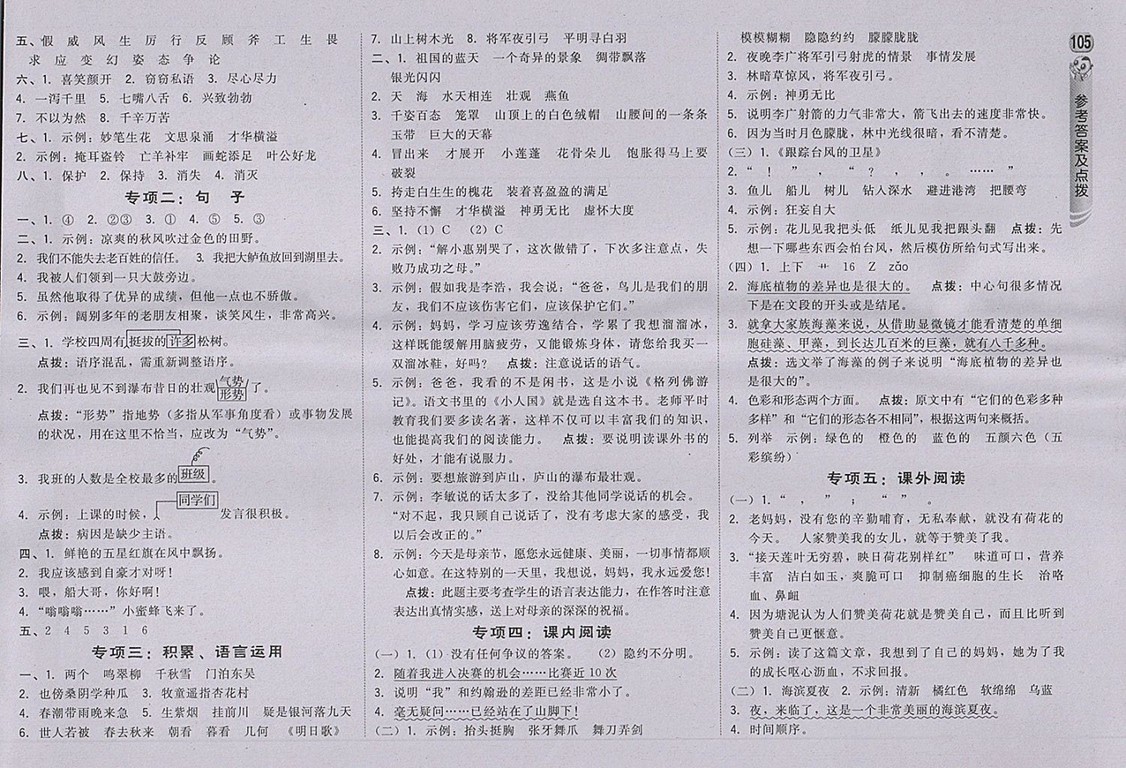 五、假 威 风 生 厉 行 反 顾 斧 工 生 畏
求 应 变 幻 姿 态 争 论
六、1. 喜笑颜开 2. 窃窃私语 3. 尽心尽力
4. 一泻千里 5. 七嘴八舌 6. 兴致勃勃
7. 不以为然 8. 千辛万苦
七、1. 示例：妙笔生花 文思泉涌 才华横溢
2. 示例：掩耳盗铃 亡羊补牢 画蛇添足 叶公好龙
八、1. 保护 2. 保持 3. 消失 4. 消灭
专项二：句 子
一、1. ④ 2. ②③ 3. ① 4. ⑤ 5. ③
二、1. 示例：凉爽的秋风吹过金色的田野。
2. 我们不能失去老百姓的信任。 3. 我把大鲈鱼放回到湖里去。
4. 我被人们领到一只大鼓旁边。
5. 虽然他取得了优异的成绩，但他一点也不骄傲。
6. 示例：阔别多年的老朋友相聚，谈笑风生，非常高兴。
三、1. 学校四周有挺拔的许多松树。
点拨：语序混乱，需重新调整语序。
2. 我们再也见不到瀑布昔日的壮观气势形势了。
点拨：“形势”指地势（多指从军事角度看）或事物发展
的状况，用在这里不恰当，应改为“气势”。
3. 我班的人数是全校最多的班级。
同学们
4. 示例：上课的时候，发言很积极。
点拨：病因是缺少主语。
四、1. 鲜艳的五星红旗在风中飘扬。
2. 我应该感到自豪才对呀！
3. 喂，船大哥，你好啊！
4. “嗡嗡嗡……”小蜜蜂飞来了。
五、2 4 5 3 1 6
专项三：积累、语言运用
一、1. 两个 鸣翠柳 千秋雪 门泊东吴
2. 也傍桑阴学种瓜 3. 牧童遥指杏花村
4. 春潮带雨晚来急 5. 生紫烟 挂前川 疑是银河落九天
6. 世人若被 春去秋来 朝看 暮看 几何 《明日歌》
7. 山上树木光 8. 将军夜引弓 平明寻白羽
二、1. 祖国的蓝天 一个奇异的景象 绸带飘落
银光闪闪
2. 天 海 水天相连 壮观 燕鱼
3. 千姿百态 笼罩 山顶上的白色绒帽 山腰间的一条条
玉带 巨大的天幕
4. 冒出来 才展开 小莲蓬 花骨朵儿 饱胀得马上要
破裂
5. 挎走白生生的槐花 装着喜盈盈的满足
6. 坚持不懈 才华横溢 神勇无比 虚怀大度
三、1. （1）C （2）C
2. 示例：“解小惠别哭了，这次做错了，下次多注意点，失
败乃成功之母。”
3. 示例：假如我是李浩，我会说：“爸爸，鸟儿是我们的朋
友，我们不应该伤害它们，应该保护它们。”
4. 示例：妈妈，学习应该劳逸结合，学累了我想溜溜冰，
这样既能缓解用脑疲劳，又能锻炼身体，请您给我买一
双溜冰鞋，好吗？ 点拨：注意说话的语气。
5. 示例：爸爸，我看的不是闲书，这是小说《格列佛游
记》。语文书里的《小人国》就是选自这本书。老师平时
教育我们要多读名著，这样不仅可以丰富我们的知识，
也能提高我们的阅读能力。 点拨：要说明读课外书的
好处，才能有说服力。
6. 示例：要想旅游到庐山，庐山的瀑布最壮观。
7. 示例：李敏说的话太多了，没给其他同学说话的机会。
“对不起，我只顾自己说话了，没有考虑大家的感受，我
以后会改正的。”
8. 示例：今天是母亲节，愿您永远健康、美丽，一切事情都顺
心如意。在这特别的一天里，我想说，妈妈，我永远爱您！
点拨：此题主要考查学生的语言表达能力，在作答时注意
表达出真情实感，送上对母亲的深深的祝福。
专项四：课内阅读
（一）1. （1）没有任何争议的答案。 （2）隐约不分明。
2. 随着我进入决赛的机会……比赛近10次
3. 说明“我”和约翰逊的差距已经非常小了。
4. 毫无疑问……已经站在了山脚下！
（二）1. 示例：抬头挺胸 张牙舞爪 舞刀弄剑
模模糊糊 隐隐约约 朦朦胧胧
2. 夜晚李广将军引弓射虎的情景 事情发展
3. 林暗草惊风，将军夜引弓。
4. 示例：神勇无比
5. 说明李广射箭的力气非常大，箭飞出去的速度非常快。
6. 因为当时月色朦胧，林中光线很暗，看不清楚。
（三）1. 《跟踪台风的卫星》
2. “ ！ ” ， “ ？ ， ， 。 …… ”
3. 鱼儿 船儿 树儿 钻入深水 避进港湾 把腰弯
4. 示例：狂妄自大
5. 示例：花儿见我把头低 纸儿见我把跟头翻 点拨：先
想一下哪些东西会怕台风，然后模仿所给句式写出来。
（四）1. 上下 艹 16 Z zǎo
2. 海底植物的差异也是很大的。 点拨：中心句很多情况
下是在文段的开头或是结尾。
3. 就拿大家族海藻来说，从借助显微镜才能看清楚的单细
胞硅藻、甲藻，到长达几百米的巨藻，就有八千多种。
点拨：选文举了海藻的例子来说明“海底植物的差异也
是很大的”。
4. 色彩和形态两个方面。 点拨：原文中有“它们的色彩多种
多样”和“它们的形态各不相同”，根据这两句来概括。
5. 列举 示例：绿色的 橙色的 蓝色的 五颜六色（五
彩缤纷）
专项五：课外阅读
（一）1. “ ， ” ； “ ” 。
2. 老妈妈，没有您的辛勤哺育，无私奉献，就没有荷花的
今天。 人家赞美我的女儿，就等于赞美了我。
3. “接天莲叶无穷碧，映日荷花别样红” 味道可口，营养
丰富 洁白如玉，爽脆可口 抑制癌细胞的生长 治咯
血、鼻衄
4. 因为塘泥认为人们赞美荷花就是赞美自己，而且比听到
赞美自己更惬意。
5. 示例：读了这篇文章，我想到了自己的妈妈，她为了我
的成长呕心沥血，不求回报。
（二）1. 海滨夏夜 2. 示例：清新 橘红色 软绵绵 乌蓝
3. 夜，来临了，这是一个非常美丽的海滨夏夜。
4. 时间顺序。
105
参考答案及点拨